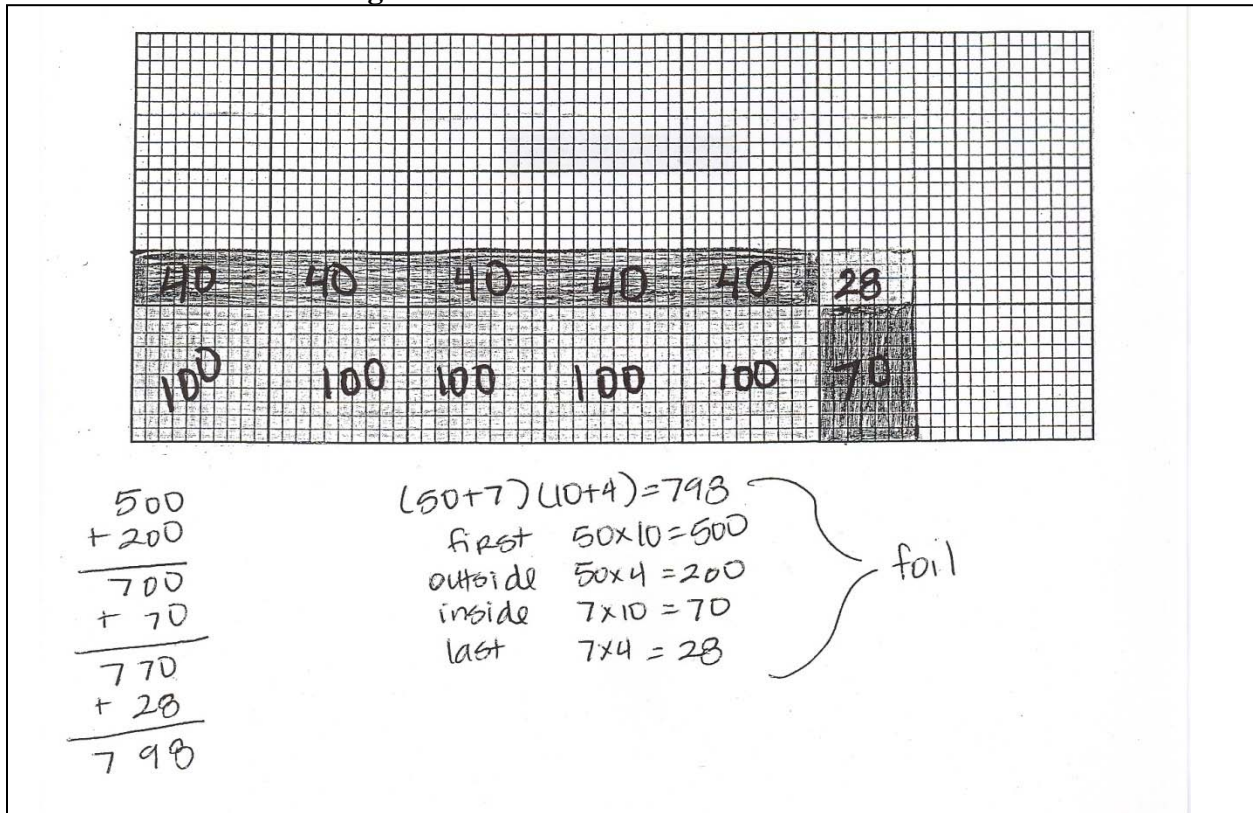 40 40 40 40 40 28
100 100 100 100 100 70
500
+ 200
700
+ 70
770
+ 28
798
(50+7)(10+4)=798
first 50x10=500
outside 50x4=200
inside 7x10=70
last 7x4=28
foil